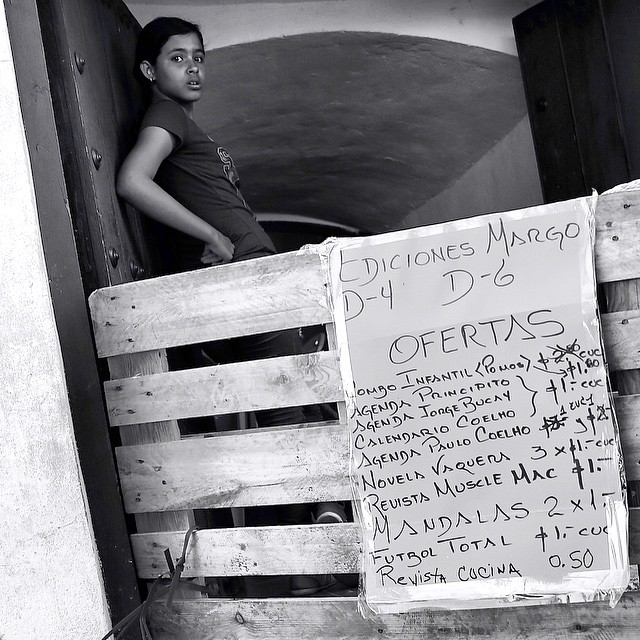 EDICIONES MARGO
D-4 D-6
OFERTAS
COMBO INFANTIL (PONOS) $1.80 CUC
AGENDA PRINCIPITO
AGENDA JORGE BUCAY $1.- CUC
CALENDARIO COELHO
AGENDA PAULO COELHO
NOVELA VAQUERA 3 x $1.- CUC
REVISTA MUSCLE MAC $1.-
MANDALAS 2 x 1.-
FUTBOL TOTAL $1.- CUC
REVISTA COCINA 0.50